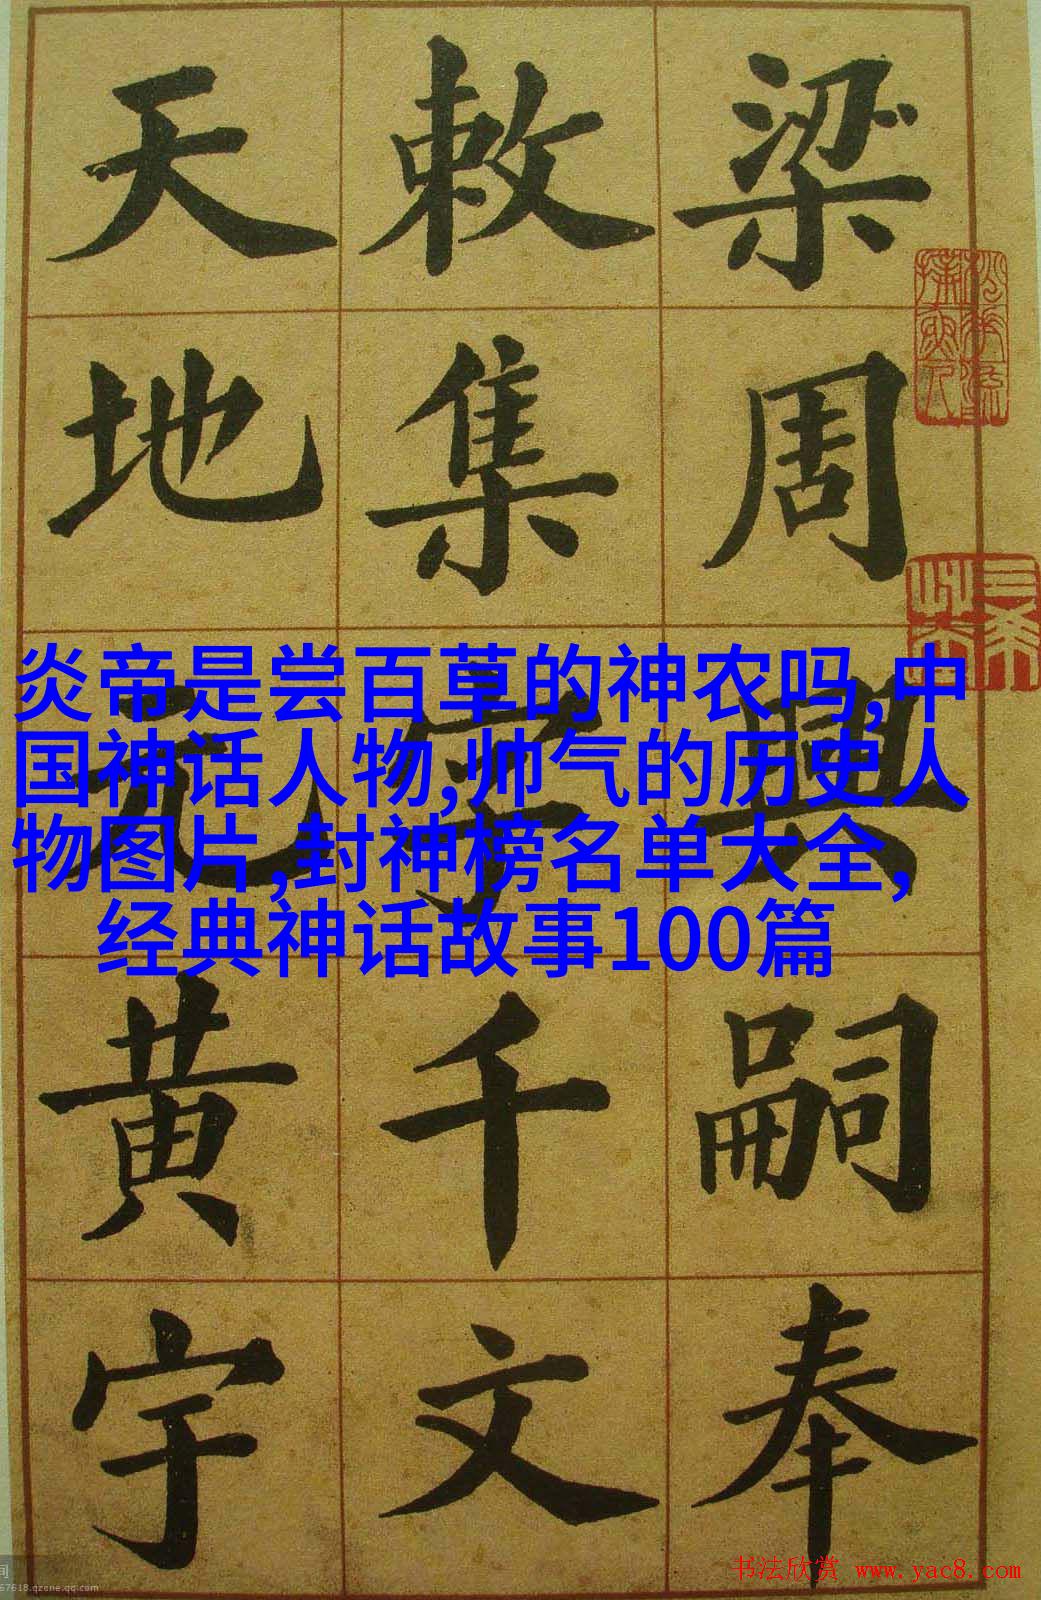 梁周興嗣奉
敕集字千文
天地元黄宇
炎帝是尝百草的神农吗,中
国神话人物,帅气的历史人
物图片,封神榜名单大全,
经典神话故事100篇
书法欣赏 www.yac8.com
间
67618.qzone.qq.com